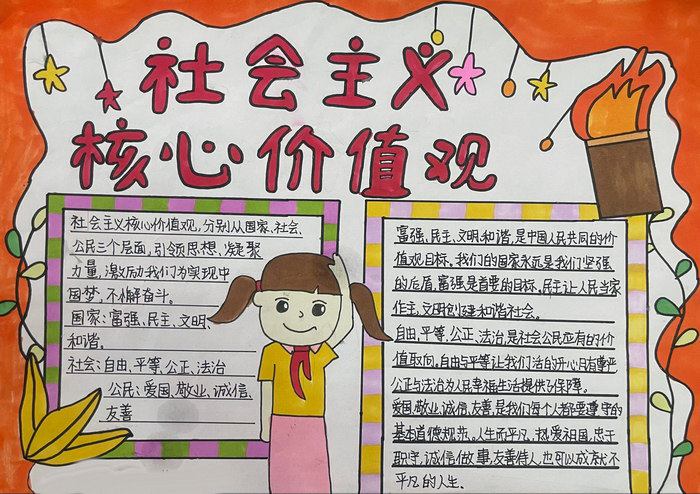 社会主义
核心价值观
社会主义核心价值观,分别从国家、社会、
公民三个层面,引领思想、凝聚
力量,激励我们为实现中
国梦,不懈奋斗。
国家:富强、民主、文明、
和谐。
社会:自由、平等、公正、法治
公民:爱国、敬业、诚信、
友善
富强、民主、文明、和谐,是中国人民共同的价
值观目标,我们的国家永远是我们坚强
的后盾,富强是首要的目标,民主让人民当家
作主,文明创建和谐社会。
自由、平等、公正、法治,是社会公民应有的价
值取向,自由与平等让我们活的开心且有尊严
公正与法治为人民幸福生活提供了保障。
爱国、敬业、诚信、友善,是我们每个人都要遵守的
基本道德规范。人生而平凡,热爱祖国,忠于
职守,诚信做事,友善待人,也可以成就不
平凡的人生。